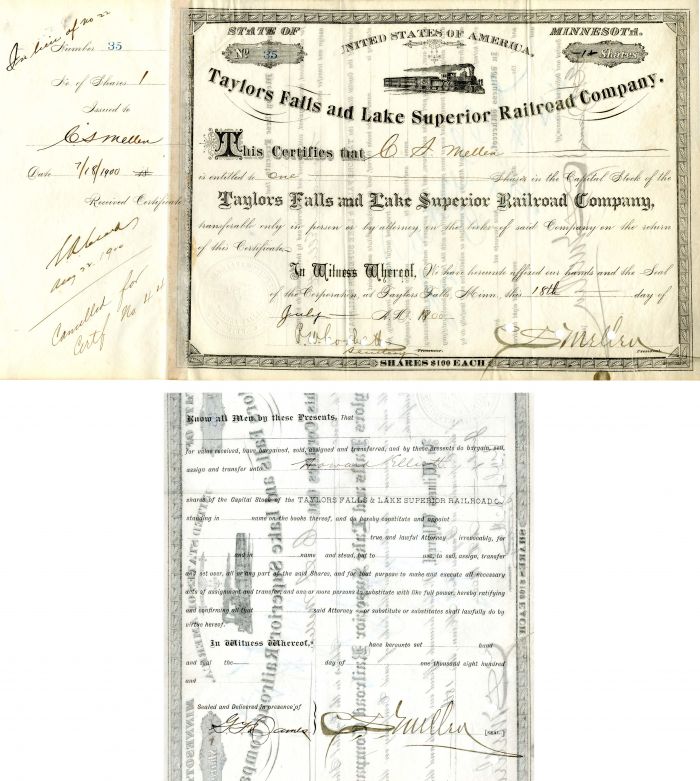 In lieu of No 22
Number 35
No of Shares 1
Issued to
C S Mellen
Date 7/18/1900
Received Certificate
Aug 22 1900
Cancelled for
Certf No 44
STATE OF
MINNESOTA.
UNITED STATES OF AMERICA.
No 35
1 Shares
Taylors Falls and Lake Superior Railroad Company.
This Certifies that C S Mellen
is entitled to one Shares in the Capital Stock of the
Taylors Falls and Lake Superior Railroad Company,
transferable only in person or by attorney on the books of said Company on the return
of this Certificate.
In Witness Whereof, We have hereunto affixed our hands and the Seal
of the Corporation, at Taylors Falls Minn, this 18th day of
July A.D. 1900
C S Mellen
Secretary
President.
SHARES $100 EACH
Know all Men by these Presents, That
for value received, have bargained, sold, assigned and transferred, and by these presents do bargain, sell,
assign and transfer unto Howard Elliott
shares of the Capital Stock of the TAYLORS FALLS & LAKE SUPERIOR RAILROAD Co.
standing in name on the books thereof, and do hereby constitute and appoint
true and lawful Attorney irrevocably, for
and in name and stead, but to use, to sell, assign, transfer
and set over, all or any part of the said Shares, and for that purpose to make and execute all necessary
acts of assignment and transfer, and one or more persons to substitute with like full power, hereby ratifying
and confirming all that said Attorney or substitute or substitutes shall lawfully do by
virtue hereof.
In Witness Whereof, have hereunto set hand
and seal the day of one thousand eight hundred
and
Sealed and Delivered in presence of
C S Mellen [SEAL.]